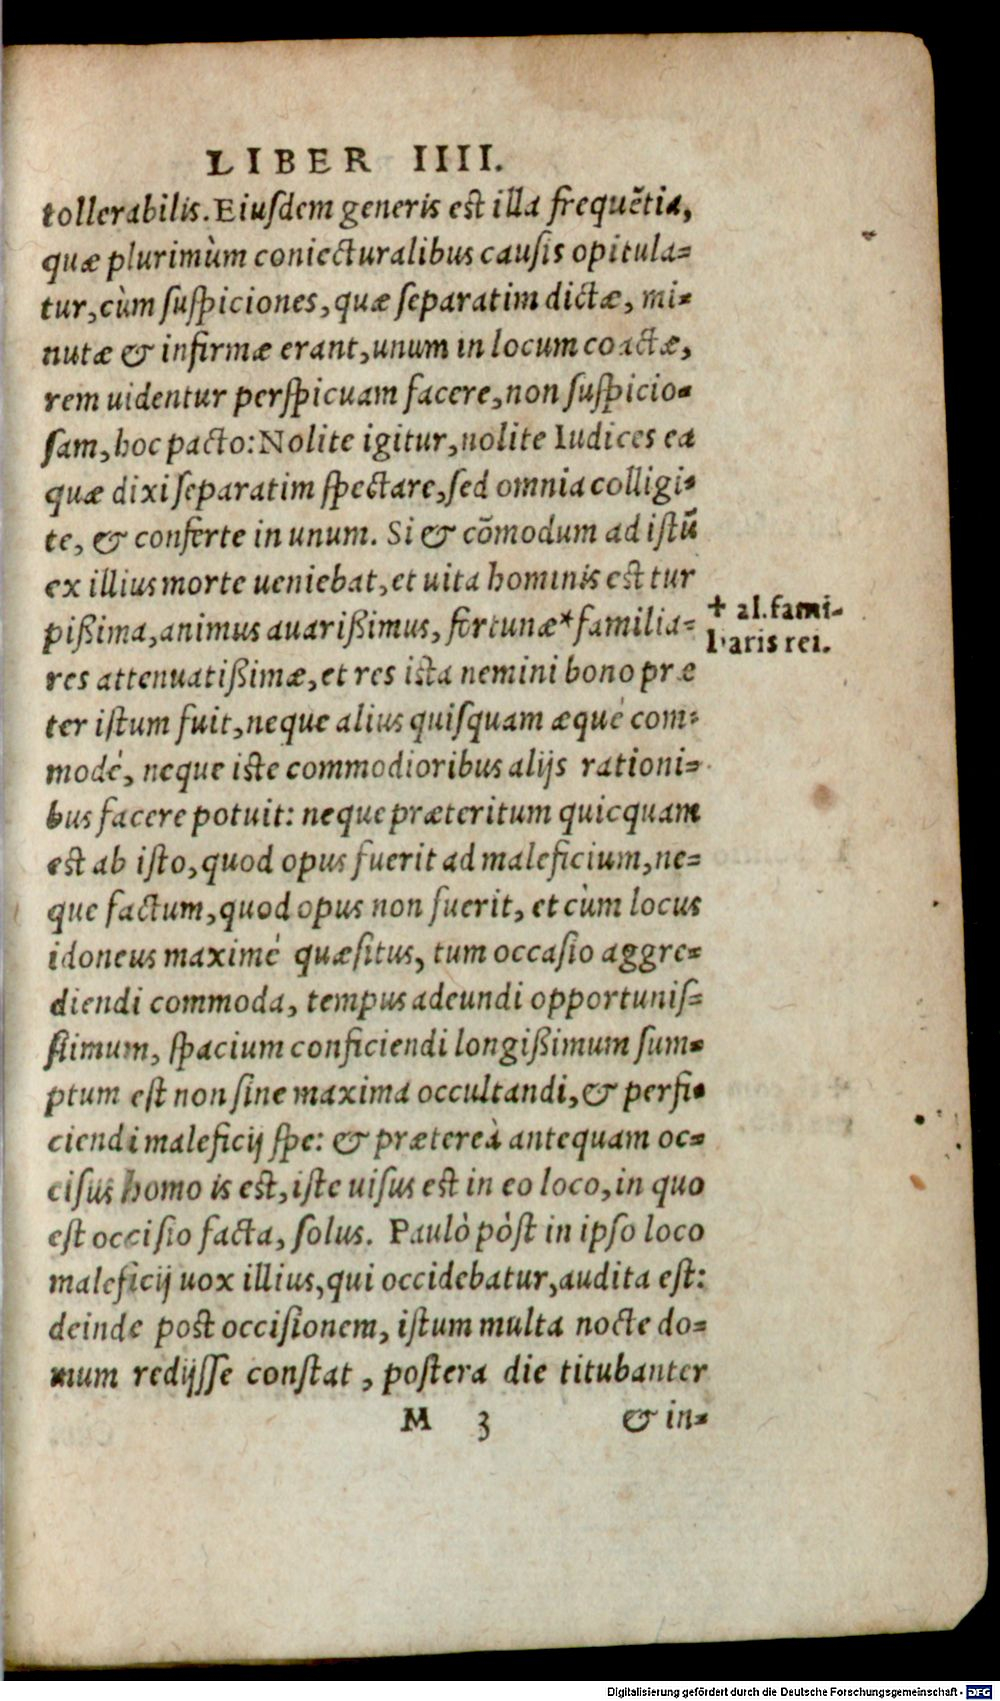 LIBER IIII.
tollerabilis. Eiuſdem generis est illa frequẽtia,
quæ plurimùm coniecturalibus causis opitula=
tur, cùm ſuſpiciones, quæ ſeparatim dictæ, mi=
nutæ & infirmæ erant, unum in locum coactæ,
rem uidentur perſpicuam facere, non ſuſpicio=
ſam, hoc pacto: Nolite igitur, nolite Iudices ea
quæ dixi ſeparatim ſpectare, ſed omnia colligi=
te, & conferte in unum. Si & cõmodum ad iſtũ
ex illius morte ueniebat, et uita hominis est tur
pißima, animus auarißimus, fortunæ* familia=
✝ al. fami-
liaris rei.
res attenuatißimæ, et res ista nemini bono præ
ter iſtum fuit, neque alius quiſquam æquè com=
modè, neque iste commodioribus alijs rationi=
bus facere potuit: neque præteritum quicquam
est ab iſto, quod opus fuerit ad maleficium, ne=
que factum, quod opus non fuerit, et cùm locus
idoneus maximè quæſitus, tum occaſio aggre=
diendi commoda, tempus adeundi opportuniſ=
ſimum, ſpacium conficiendi longißimum ſum=
ptum eſt non ſine maxima occultandi, & perfi=
ciendi maleficij ſpe: & prætereà antequam oc=
ciſus homo is est, iſte uiſus est in eo loco, in quo
eſt occiſio facta, ſolus. Paulò pòſt in ipſo loco
maleficij uox illius, qui occidebatur, audita eſt:
deinde post occiſionem, iſtum multa nocte do=
mum redijſſe conſtat, poſtera die titubanter
M 3 & in=
Digitalisierung gefördert durch die Deutsche Forschungsgemeinschaft - DFG